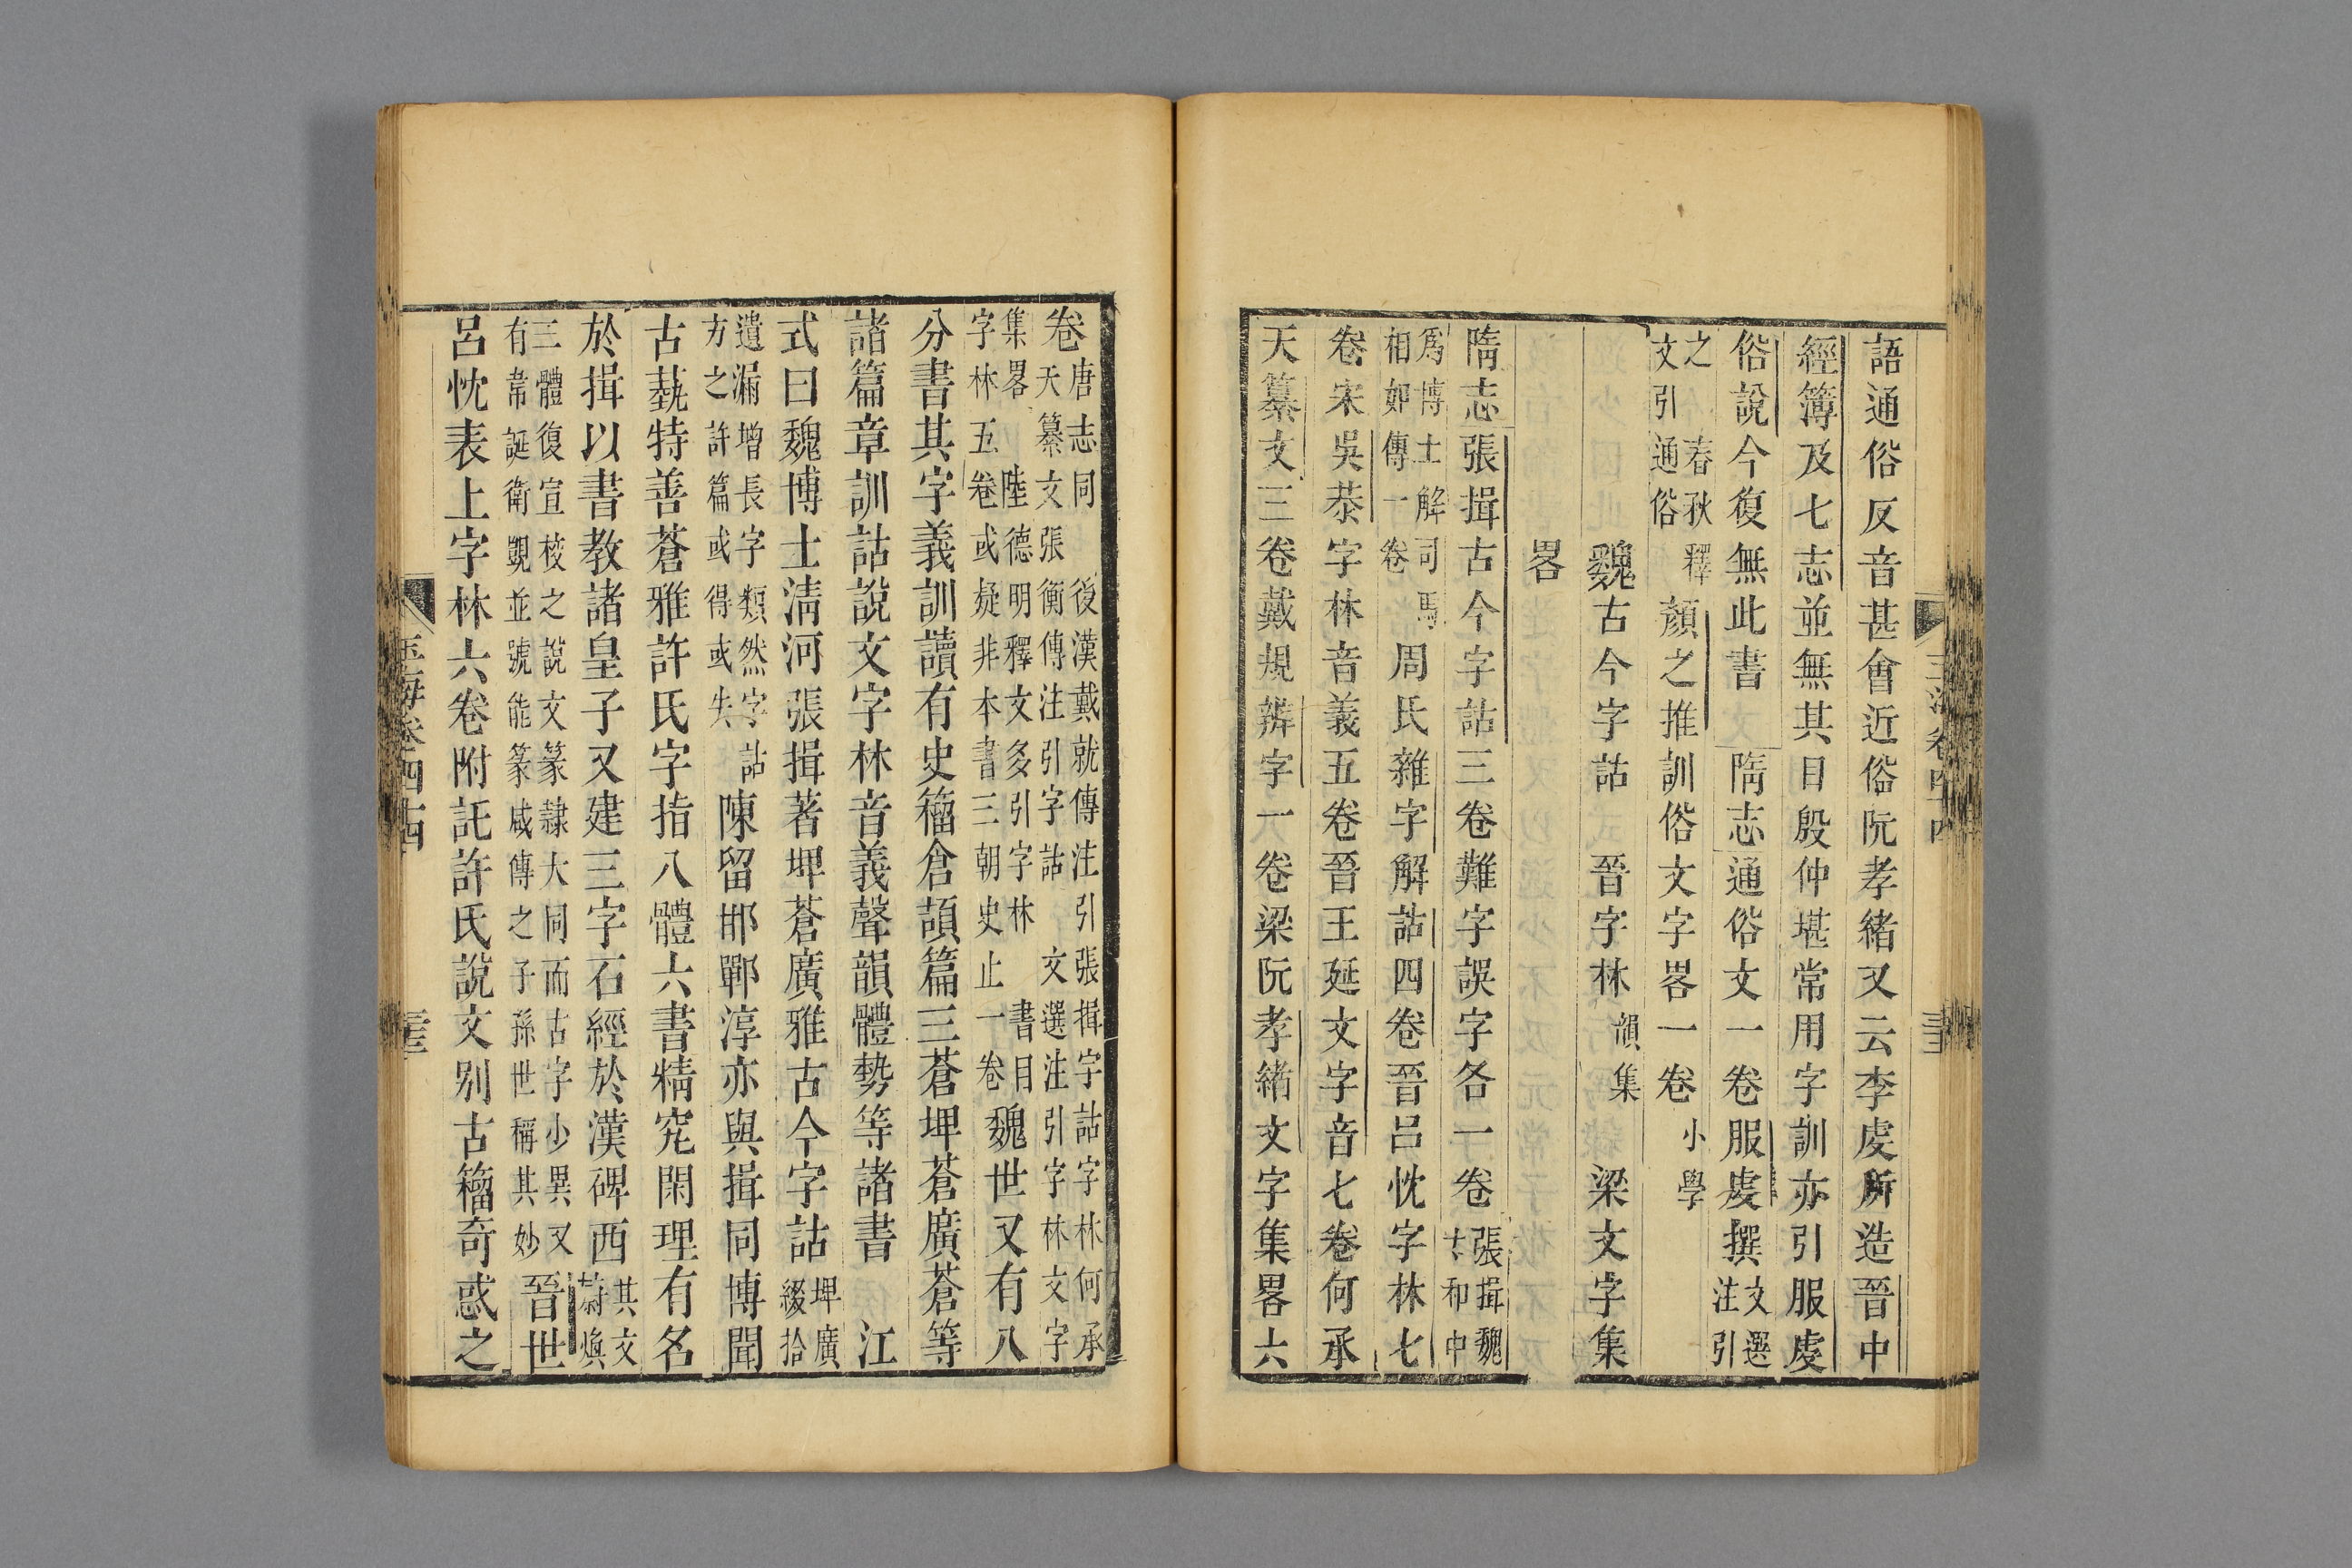 語通俗反音甚會近俗阮孝緒又云李虔所造晉中
經簿及七志並無其目殷仲堪常用字訓亦引服虔
俗說今復無此書 隋志通俗文一卷服虔撰文選注引
之春秋釋文引通俗 顏之推訓俗文字畧一卷小學
魏古今字詁 晉字林韻集 梁文字集
畧
隋志張揖古今字詁三卷難字誤字各一卷張揖魏太和中
爲博士解司馬相如傳一卷周氏雜字解詁四卷晉呂忱字林七
卷宋吳恭字林音義五卷晉王延文字音七卷何承
天纂文三卷戴規辨字一卷梁阮孝緒文字集畧六
卷唐志同 後漢戴就傳注引張揖字詁字林何承天纂文張衡傳注引字詁 文選注引字林文字
集畧 陸德明釋文多引字林 書目字林五卷或疑非本書三朝史止一卷魏世又有八
分書其字義訓讀有史籀倉頡篇三蒼埤蒼廣蒼等
諸篇章訓詁說文字林音義聲韻體勢等諸書 江
式曰魏博士淸河張揖著埤蒼廣雅古今字詁埤廣綴拾
遺漏增長字類然字詁方之許篇或得或失陳留邯鄲淳亦與揖同博聞
古蓺特善蒼雅許氏字指八體六書精究閑理有名
於揖以書教諸皇子又建三字石經於漢碑西其文蔚煥
三體復宣校之說文篆隷大同而古字少異又有韋誕衛覬並號能篆咸傳之子孫世稱其妙晉世
呂忱表上字林六卷附託許氏說文别古籀奇惑之
玉海卷四十四